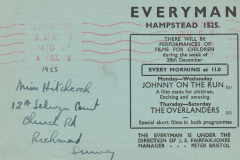 EVERYMAN
HAMPSTEAD 1525.
THERE WILL BE
PERFORMANCES OF
FILMS FOR CHILDREN
during the week of
28th December
EVERY MORNING at 11.0
Monday—Wednesday
JOHNNY ON THE RUN (U)
A film made for children.
Exciting and amusing.
Thursday—Saturday
THE OVERLANDERS (U)
Special short films in both programmes
THE EVERYMAN IS UNDER THE
DIRECTION OF J. S. FAIRFAX-JONES
MANAGER - - - PETER BRISTOL
1955
Miss Hitchcock
12A Selwyn Court
Church Rd
Richmond
Surrey